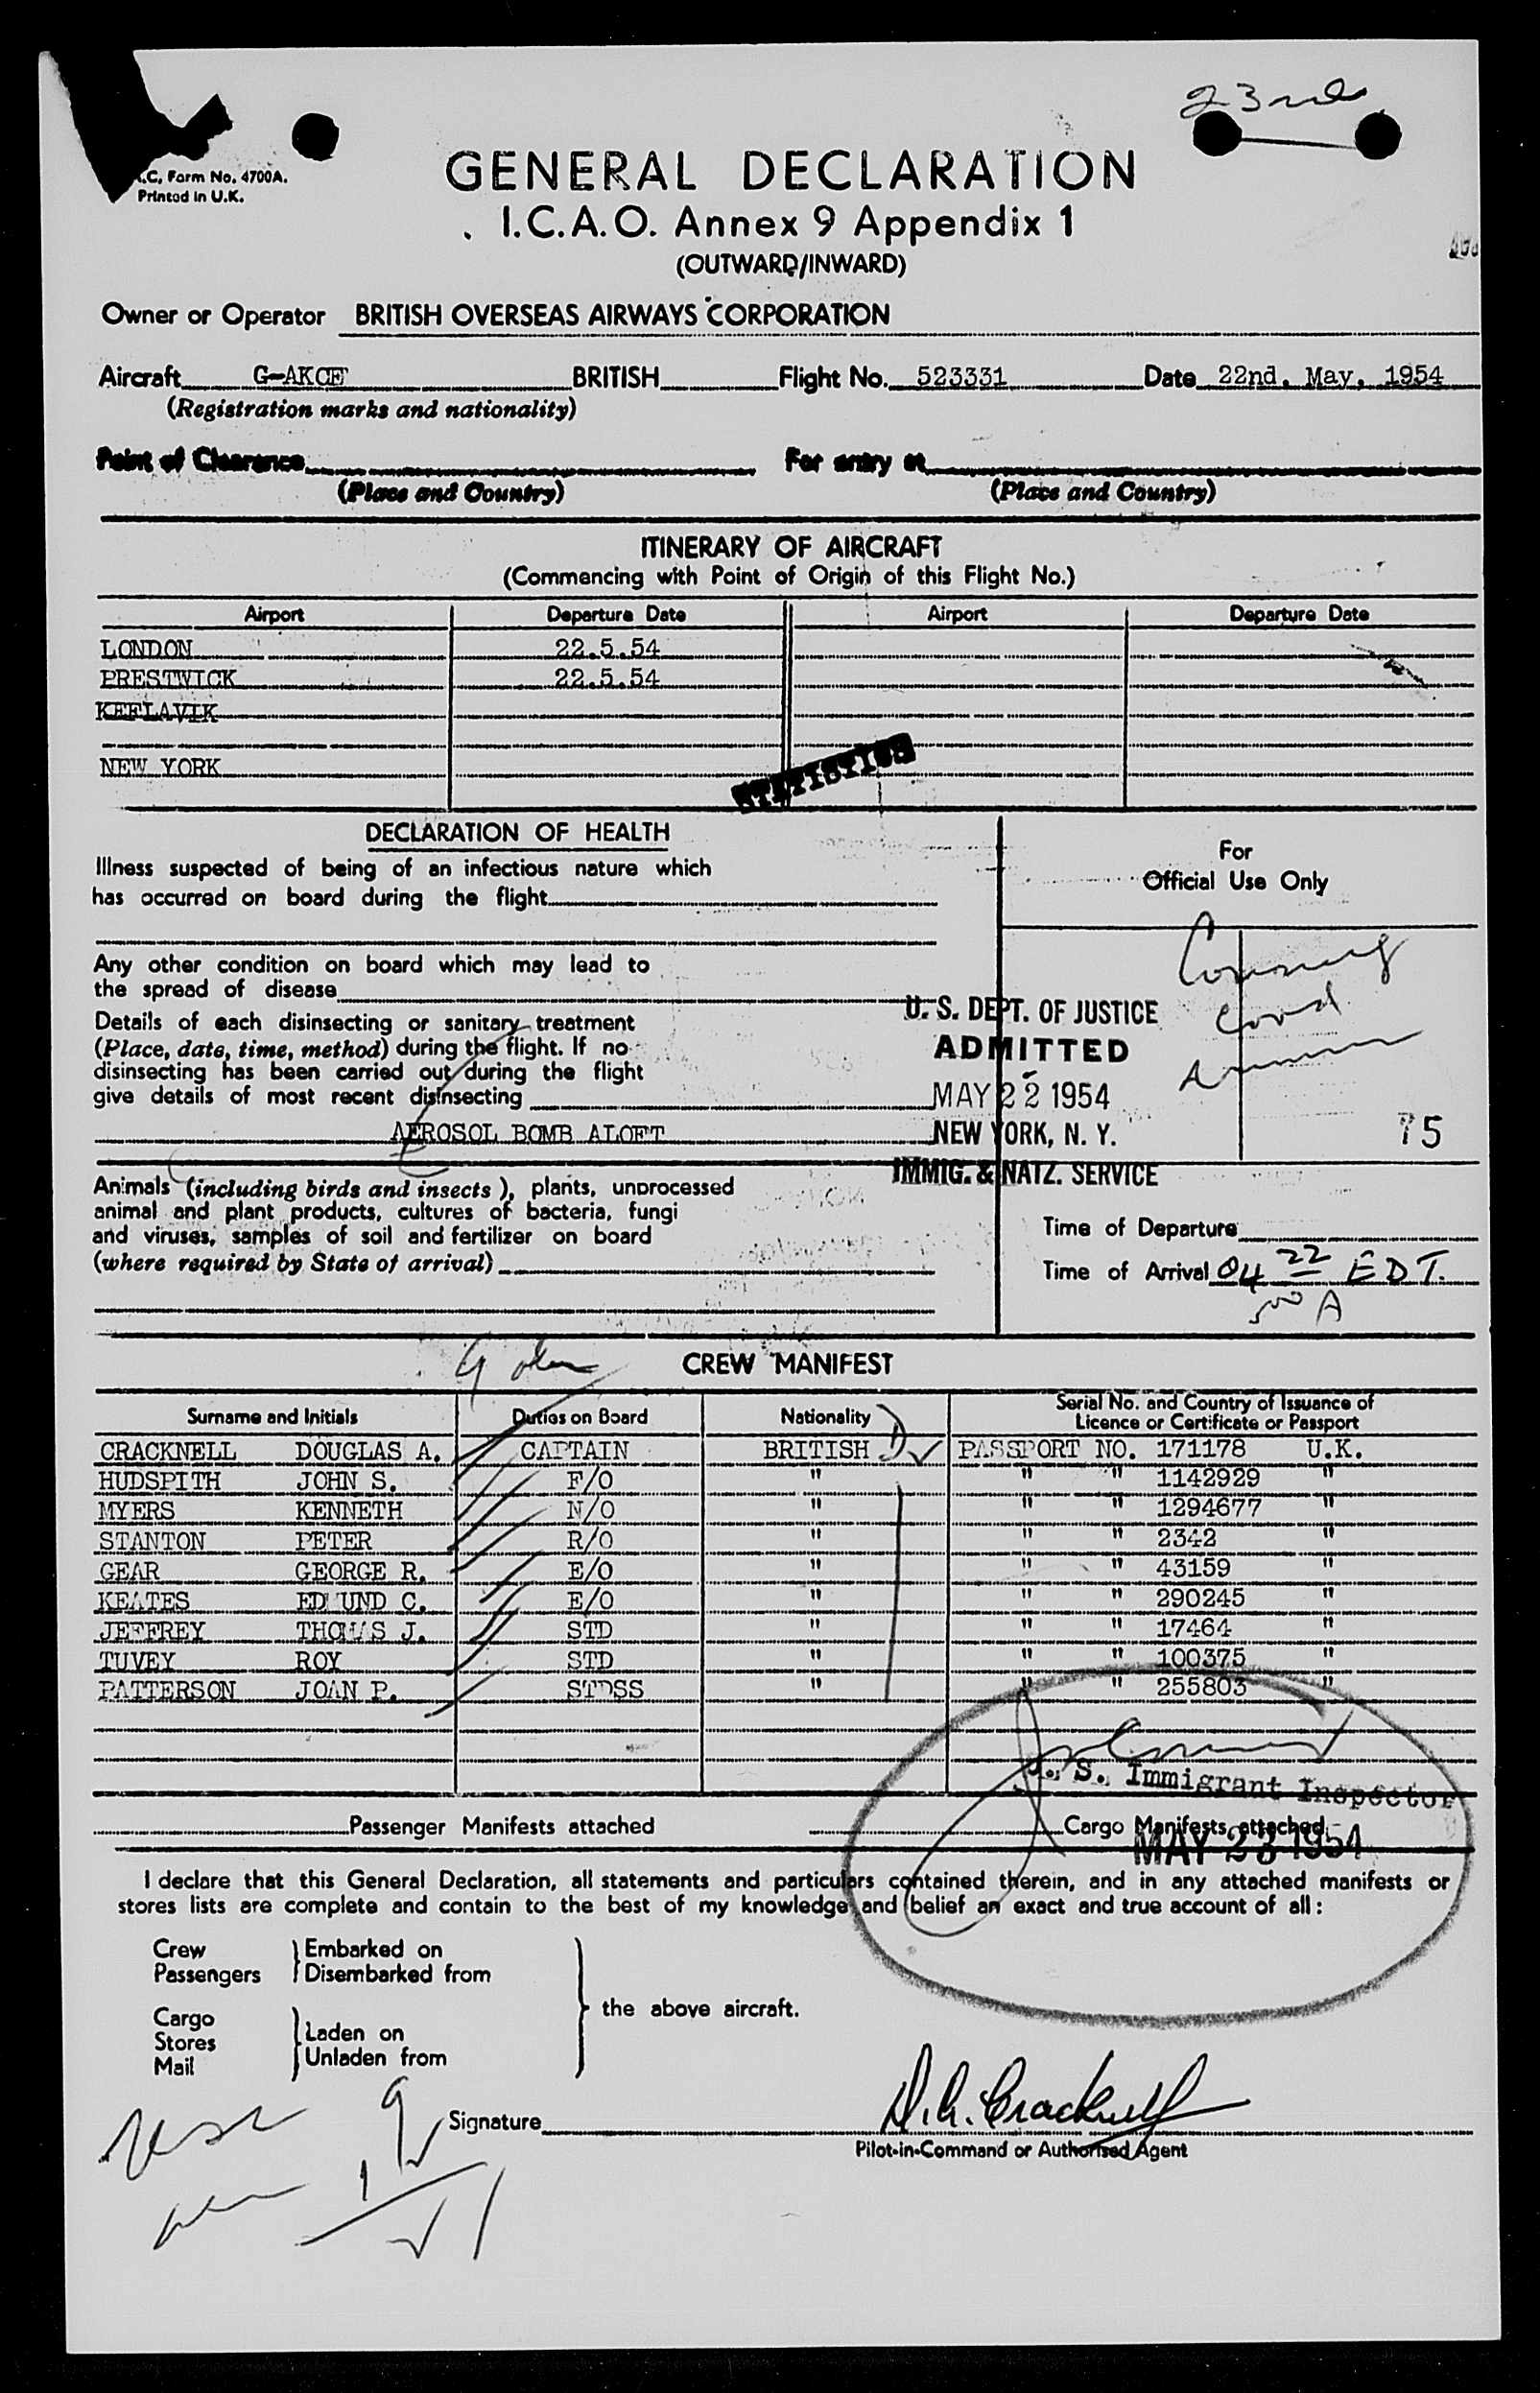 23rd
.C. Form No. 4700A.
Printed in U.K.
GENERAL DECLARATION
I.C.A.O. Annex 9 Appendix 1
(OUTWARD/INWARD)
Owner or Operator BRITISH OVERSEAS AIRWAYS CORPORATION
Aircraft G-AKCE BRITISH Flight No. 523331 Date 22nd. May, 1954
(Registration marks and nationality)
Point of Clearance For entry at
(Place and Country) (Place and Country)
ITINERARY OF AIRCRAFT
(Commencing with Point of Origin of this Flight No.)
Airport Departure Date Airport Departure Date
LONDON 22.5.54
PRESTWICK 22.5.54
KEFLAVIK
NEW YORK
STATISTICS
DECLARATION OF HEALTH
Illness suspected of being of an infectious nature which
has occurred on board during the flight
Any other condition on board which may lead to
the spread of disease
Details of each disinsecting or sanitary treatment
(Place, date, time, method) during the flight. If no
disinsecting has been carried out during the flight
give details of most recent disinsecting
AEROSOL BOMB ALOFT
Animals (including birds and insects), plants, unprocessed
animal and plant products, cultures of bacteria, fungi
and viruses, samples of soil and fertilizer on board
(where required by State of arrival)
For
Official Use Only
U. S. DEPT. OF JUSTICE
ADMITTED
MAY 22 1954
NEW YORK, N. Y.
IMMIG. & NATZ. SERVICE
75
Time of Departure
Time of Arrival 04 22 EDT.
A
CREW MANIFEST
Surname and Initials Duties on Board Nationality Serial No. and Country of Issuance of
Licence or Certificate or Passport
CRACKNELL DOUGLAS A. CAPTAIN BRITISH PASSPORT NO. 171178 U.K.
HUDSPITH JOHN S. F/O " " " 1142929 "
MYERS KENNETH N/O " " " 1294677 "
STANTON PETER R/O " " " 2342 "
GEAR GEORGE R. E/O " " " 43159 "
KEATES EDMUND C. E/O " " " 290245 "
JEFFREY THOMAS J. STD " " " 17464 "
TUVEY ROY STD " " " 100375 "
PATTERSON JOAN P. STDSS " " " 255803 "
U. S. Immigrant Inspector
Passenger Manifests attached Cargo Manifests attached
MAY 23 1954
I declare that this General Declaration, all statements and particulars contained therein, and in any attached manifests or
stores lists are complete and contain to the best of my knowledge and belief an exact and true account of all:
Crew Embarked on
Passengers Disembarked from
the above aircraft.
Cargo
Stores Laden on
Mail Unladen from
9
Signature D.A. Cracknell
Pilot-in-Command or Authorised Agent